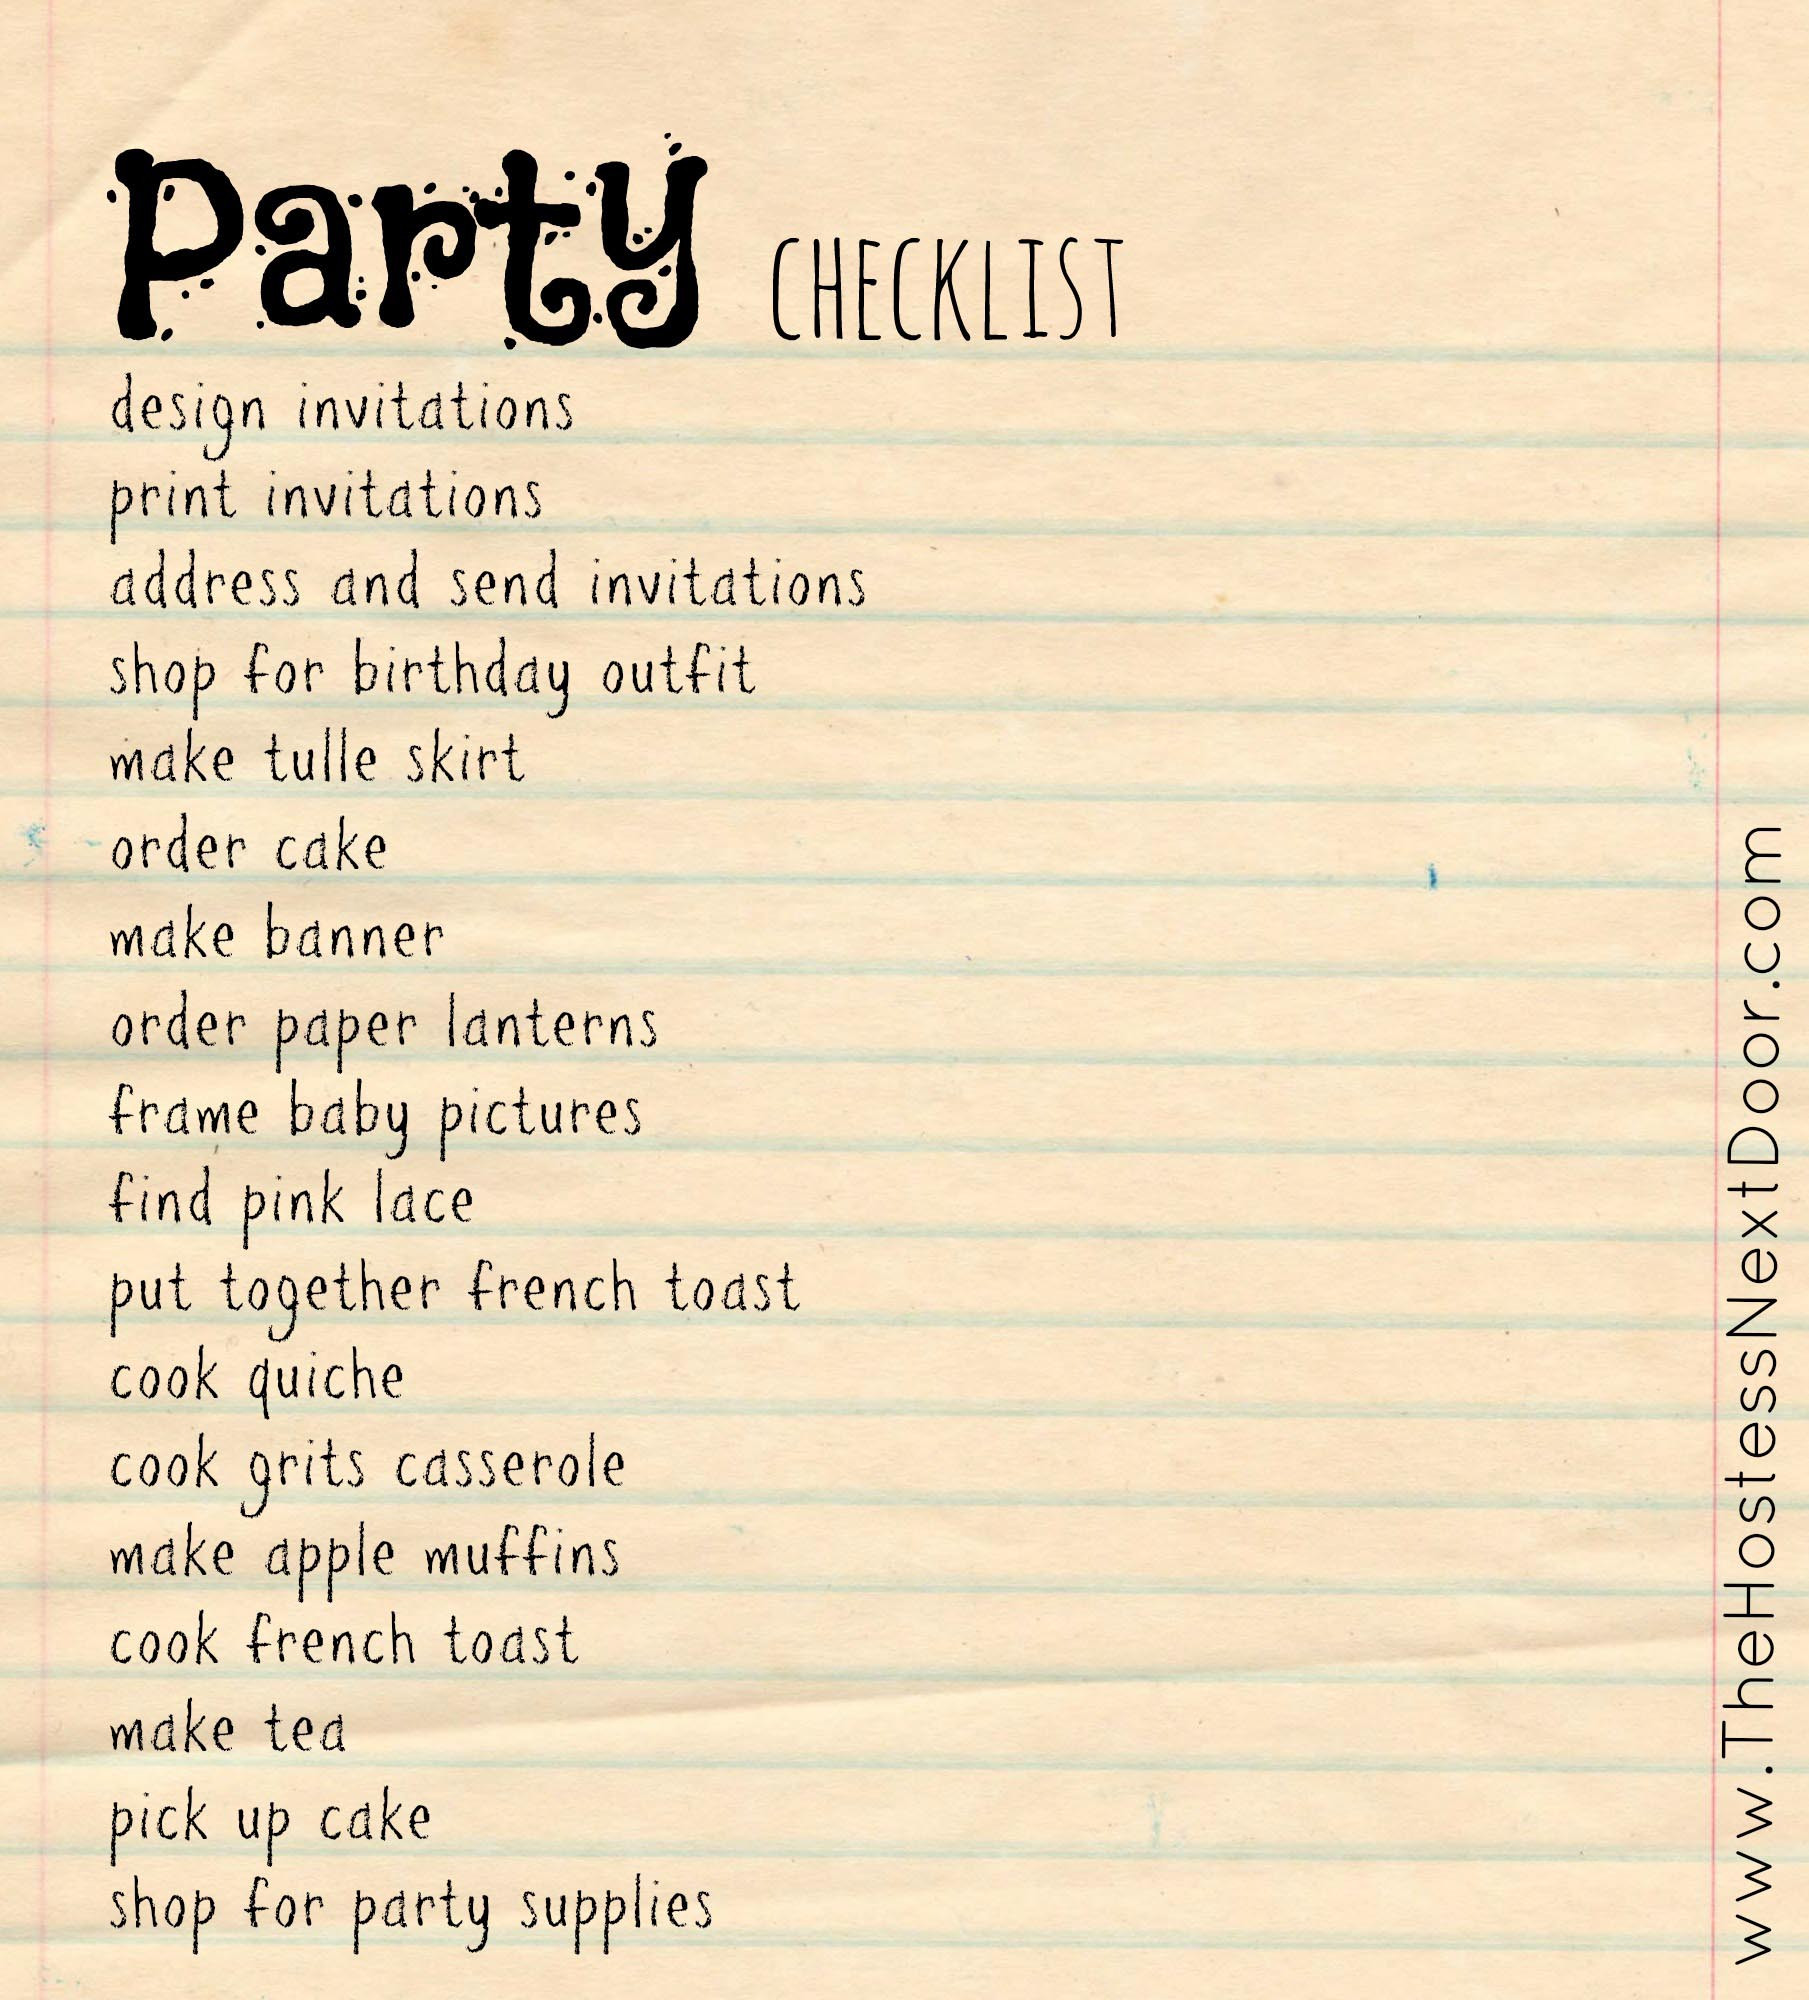 Party CHECKLIST
design invitations
print invitations
address and send invitations
shop for birthday outfit
make tulle skirt
order cake
make banner
order paper lanterns
frame baby pictures
find pink lace
put together french toast
cook quiche
cook grits casserole
make apple muffins
cook french toast
make tea
pick up cake
shop for party supplies
www.TheHostessNextDoor.com